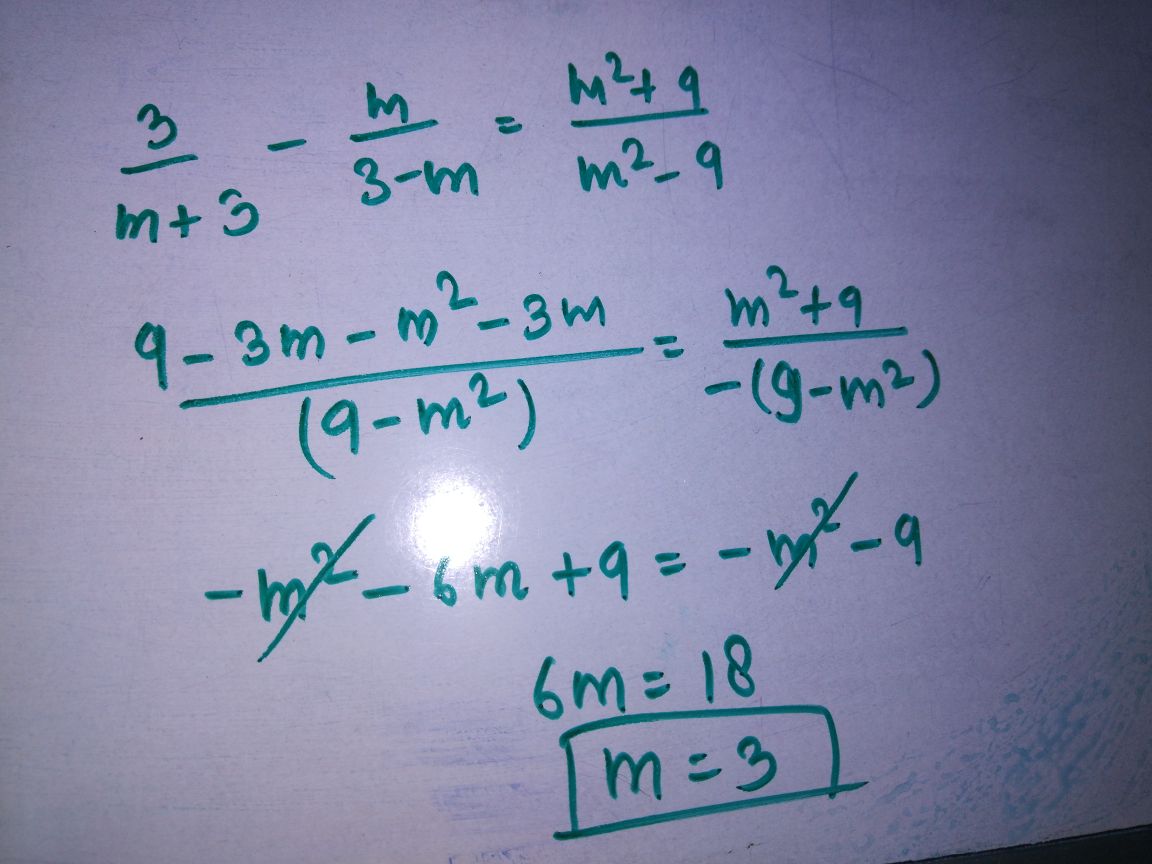 3/(m+3) - m/(3-m) = (m²+9)/(m²-9)
(9-3m-m²-3m)/(9-m²) = (m²+9)/-(9-m²)
-m²-6m+9 = -m²-9
6m = 18
m = 3